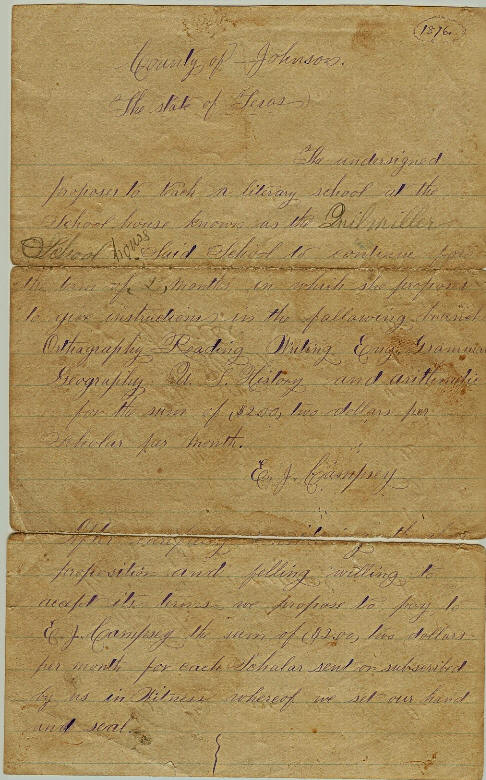 1876.
County of Johnson.
The state of Texas
The undersigned
proposes to teach a literary school at the
School house known as the Quilmiller
School house Said School to continue for
the term of months in which she proposes
to give instructions in the following branch
Orthography Reading Writing Eng. Grammar
Geography U. S. History and arithmetic
for the sum of $2.00, two dollars per
Scholar per month.
E. J. Campsey
After
proposition and felling willing to
accept its terms we propose to pay to
E. J. Campsey the sum of $2.00, two dollars
per month for each Schalar sent or subscribed
by us in Witness whereof we set our hand
and seal.